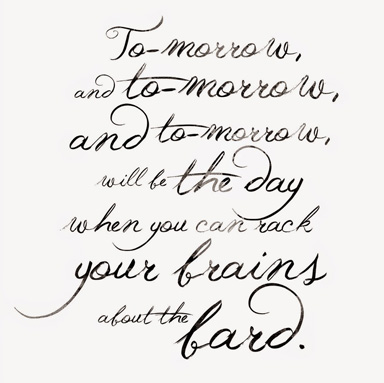 To-morrow,
and to-morrow,
and to-morrow,
will be the day
when you can rack
your brains
about the
bard.